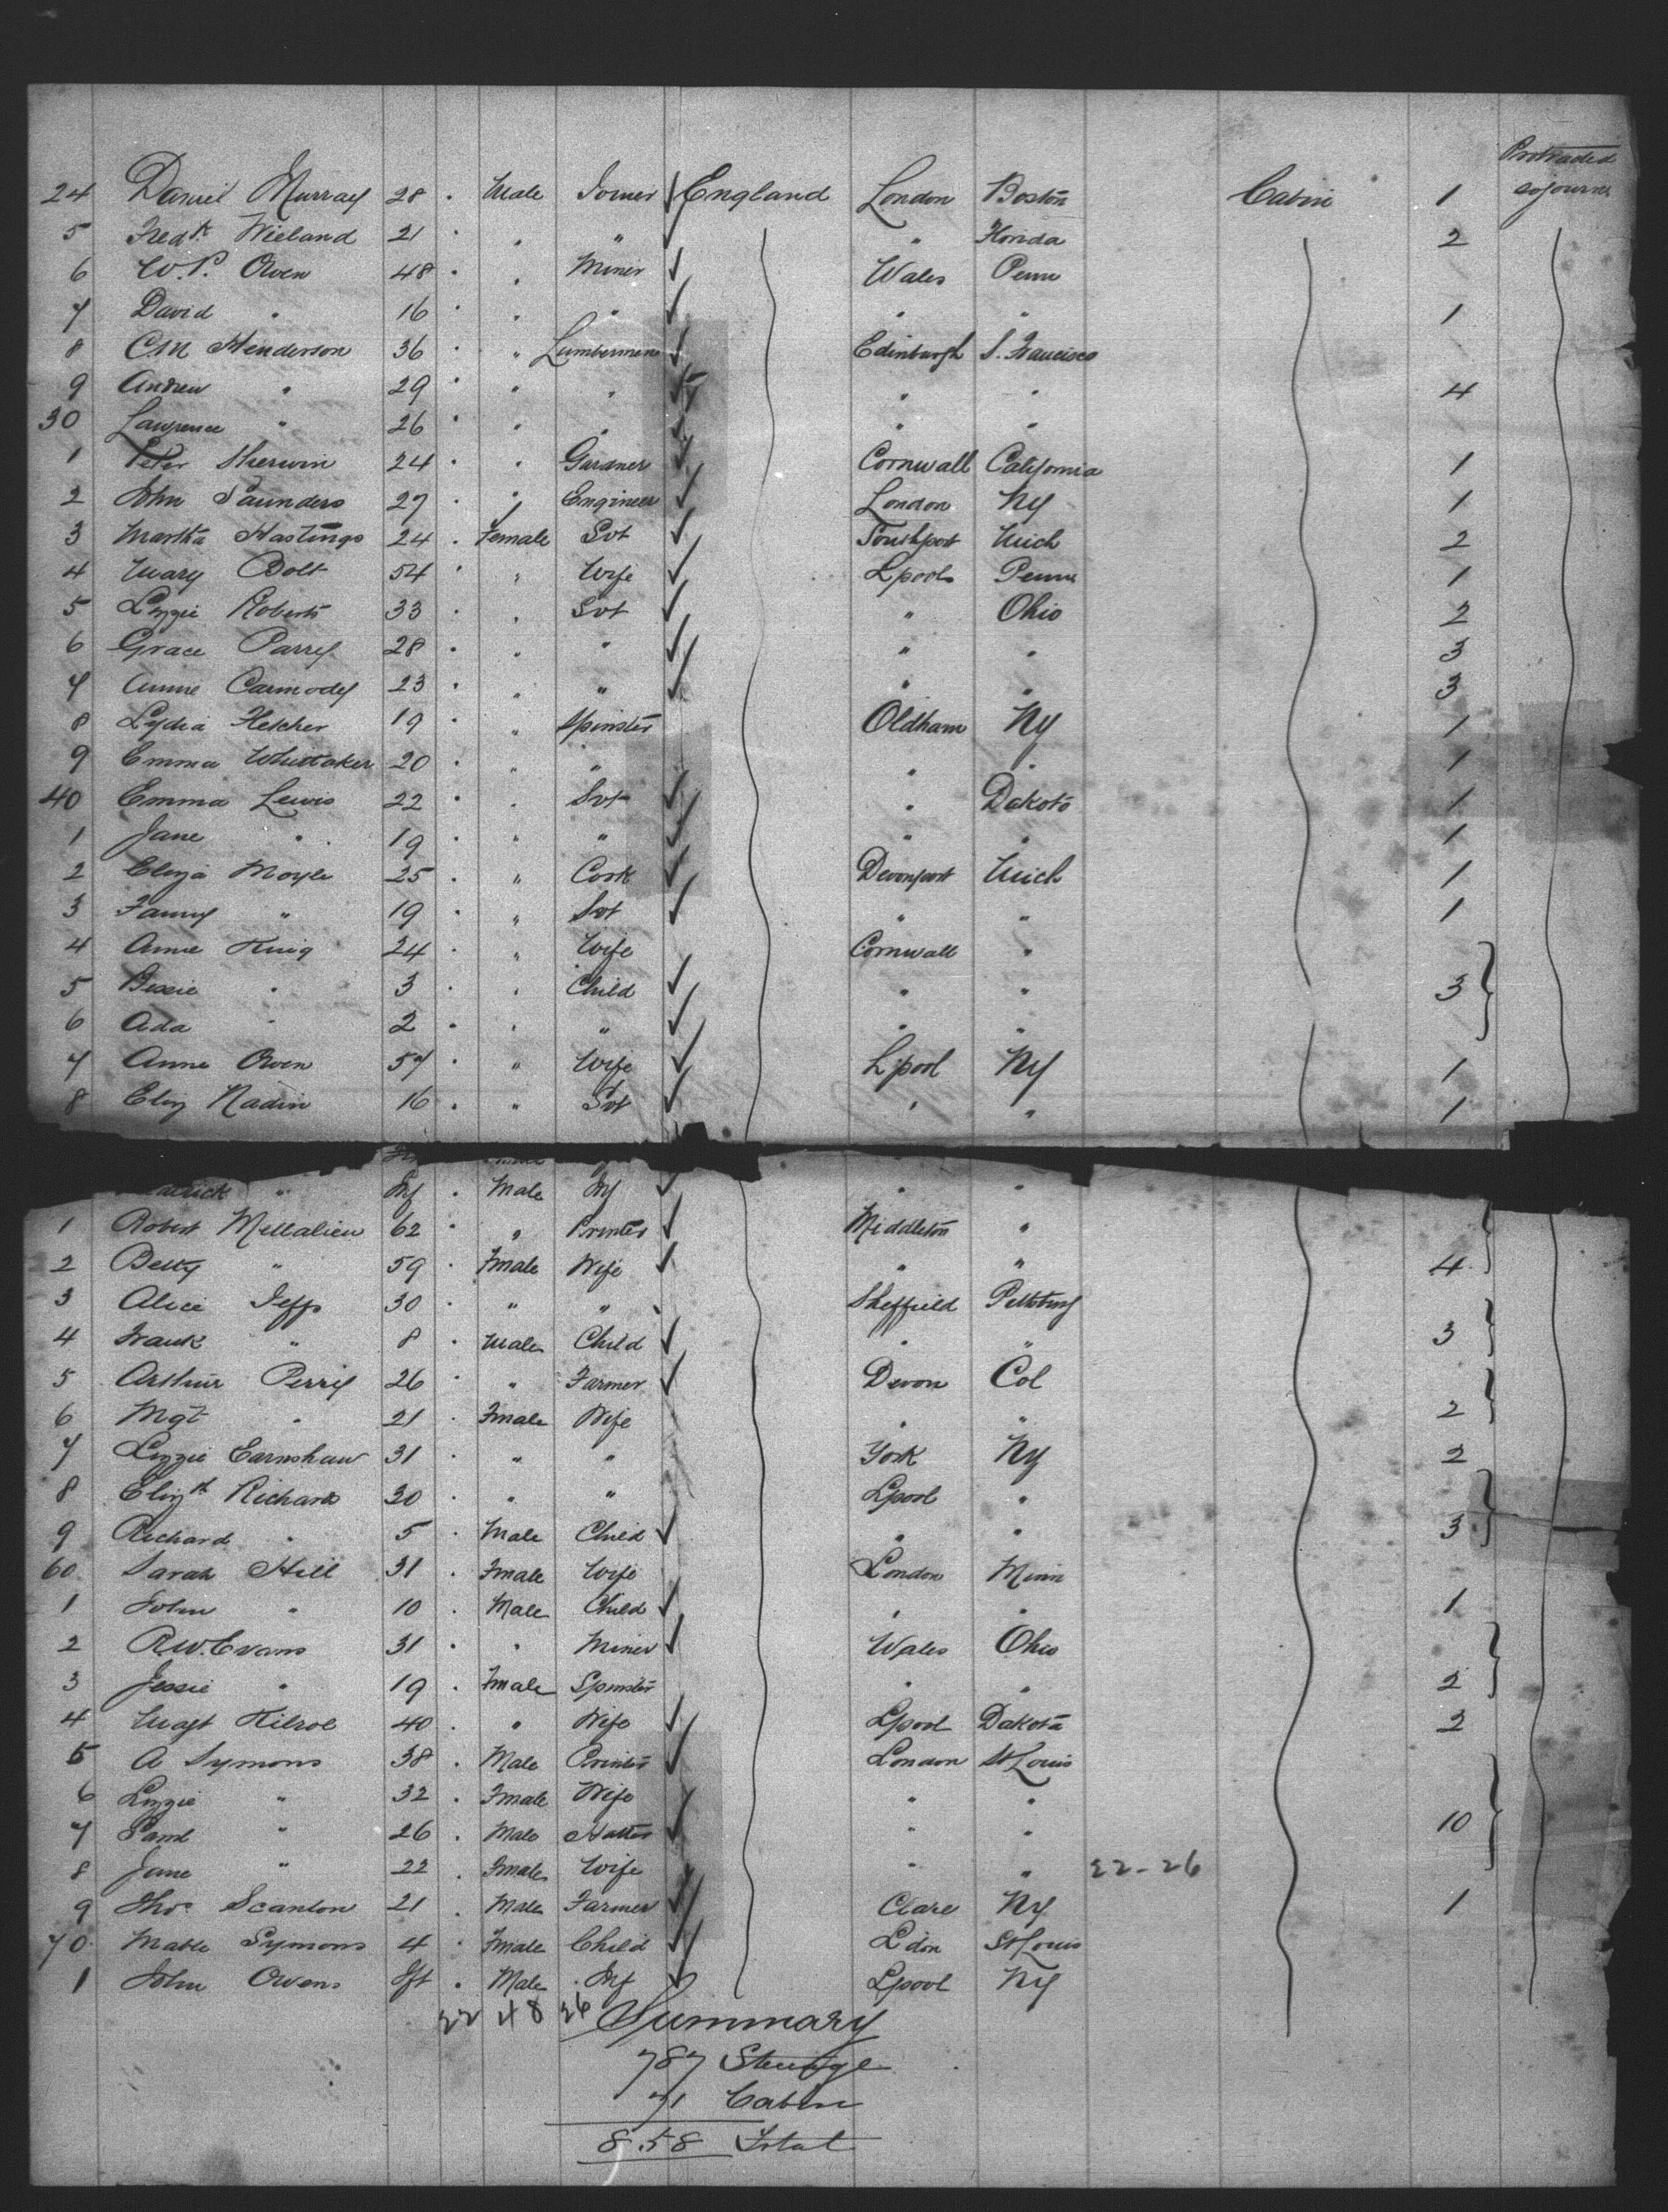 Protracted
24 Daniel Murray 28 . Male Joiner England London Boston Cabin 1 sojourn
5 Fredk Wieland 21 . " " " Florida 2
6 W.P. Owen 48 . " Miner Wales Penn
7 David " 16 . " " " " 1
8 CM Henderson 36 . " Lumbermen Edinburgh S. Francisco
9 Andrew " 29 . " " " " 4
30 Lawrence " 26 . " " " "
1 Peter Sherwin 24 . " Gardner Cornwall California 1
2 John Saunders 27 . " Engineer London Ny 1
3 Martha Hastings 24 . Female Svt Southport Mich 2
4 Mary Bolt 54 . " Wife Lpool Penn 1
5 Lizzie Roberts 33 . " Svt " Ohio 2
6 Grace Parry 28 . " " " " 3
7 Annie Carmody 23 . " " " " 3
8 Lydia Fletcher 19 . " Spinster Oldham Ny 1
9 Emma Whittaker 20 . " " " " 1
40 Emma Lewis 22 . " Svt " Dakota 1
1 Jane " 19 . " " " " 1
2 Eliza Moyle 25 . " Cook Devonport Mich 1
3 Fanny " 19 . " Svt " " 1
4 Annie King 24 . " Wife Cornwall "
5 Bessie " 3 . " Child " " 3
6 Ada " 2 . " " " "
7 Anne Owen 57 . " Wife Lpool Ny 1
8 Eliz Nadin 16 . " Svt " " 1
" Inf . Male Inf " "
1 Robert Mellalieu 62 . " Printer Middleton "
2 Betty " 59 . Fmale Wife " " 4
3 Alice Jepps 30 . " " Sheffield Pittsburg
4 Frank " 8 . Male Child " " 3
5 Arthur Perry 26 . " Farmer Devon Col
6 Mgt " 21 . Fmale Wife " " 2
7 Lizzie Earnshaw 31 . " " York Ny 2
8 Elizth Richard 30 . " " Lpool "
9 Richard " 5 . Male Child " " 3
60 Sarah Hill 31 . Fmale Wife London Minn
1 John " 10 . Male Child " " 1
2 R.W. Evans 31 . " Miner Wales Ohio
3 Jessie " 19 . Fmale Spinster " " 2
4 Magt Kilroe 40 . " Wife Lpool Dakota 2
5 A Symons 38 . Male Printer London St Louis
6 Lizzie " 32 . Fmale Wife " "
7 Saml " 26 . Male Hatter " " 10
8 Jane " 22 . Fmale Wife " " 22-26
9 Thos Scanlon 21 . Male Farmer Clare Ny 1
70 Mable Symons 4 . Fmale Child Ldon St Louis
1 John Owens Ift . Male Inf Lpool Ny
22 48 26 Summary
787 Steerage
71 Cabin
858 Total